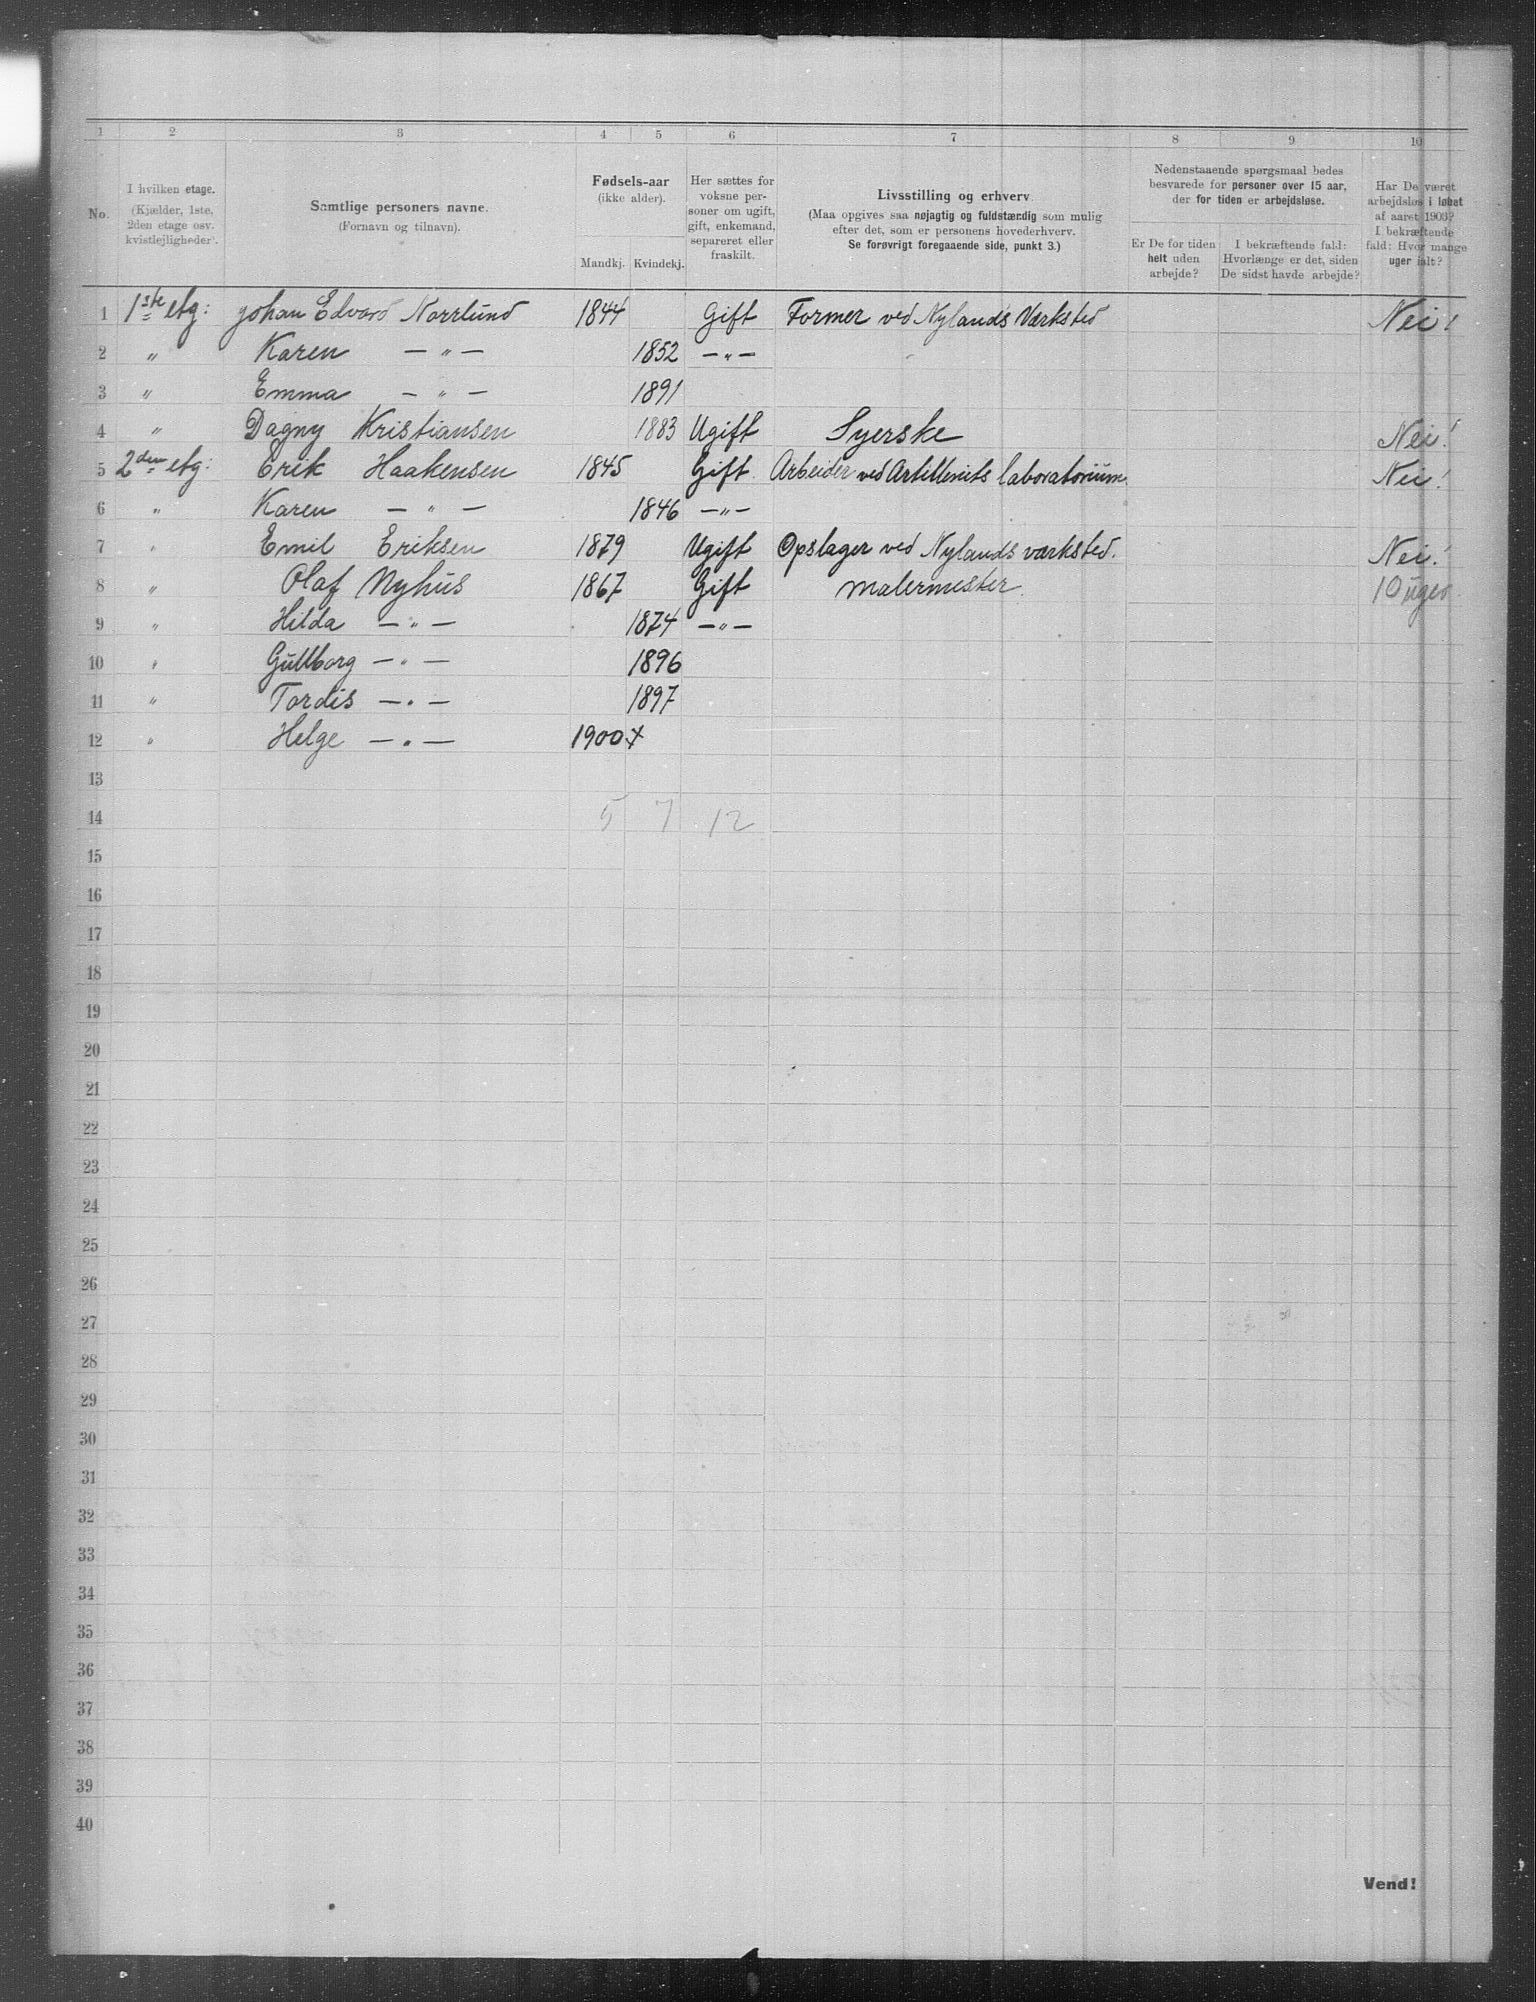 1 2 3 4 5 6 7 8 9 10
No.
I hvilken etage.
(Kjælder, 1ste,
2den etage osv.
kvistlejligheder).
Samtlige personers navne.
(Fornavn og tilnavn).
Fødsels-aar
(ikke alder).
Mandkj. Kvindekj.
Her sættes for
voksne per-
soner om ugift,
gift, enkemand,
separeret eller
fraskilt.
Livsstilling og erhverv.
(Maa opgives saa nøjagtig og fuldstændig som mulig
efter det, som er personens hovederhverv.
Se forøvrigt foregaaende side, punkt 3.)
Nedenstaaende spørgsmaal bedes
besvarede for personer over 15 aar,
der for tiden er arbejdsløse.
Er De for tiden
helt uden
arbejde?
I bekræftende fald:
Hvorlænge er det, siden
De sidst havde arbejde?
Har De været
arbejdsløs i løbet
af aaret 1903?
I bekræftende
fald: Hvor mange
uger ialt?
1 1ste etg: Johan Edvard Norrlund 1844 Gift Former ved Nylands Værksted Nei!
2 " Karen — " — 1852 — " —
3 " Emma — " — 1891
4 " Dagny Kristiansen 1883 Ugift Syerske Nei!
5 2den etg: Erik Haakensen 1845 Gift Arbeider ved Artilleriets laboratorium. Nei!
6 " Karen — " — 1846 — " —
7 " Emil Eriksen 1879 Ugift Opslager ved Nylands værksted. Nei!
8 " Olaf Nyhus 1867 Gift malermester 10 uger
9 " Hilda — " — 1874 — " —
10 " Gullborg — " — 1896
11 " Tordis — " — 1897
12 " Helge — " — 1900 x
13
14 5 7 12
15
16
17
18
19
20
21
22
23
24
25
26
27
28
29
30
31
32
33
34
35
36
37
38
39
40
Vend!